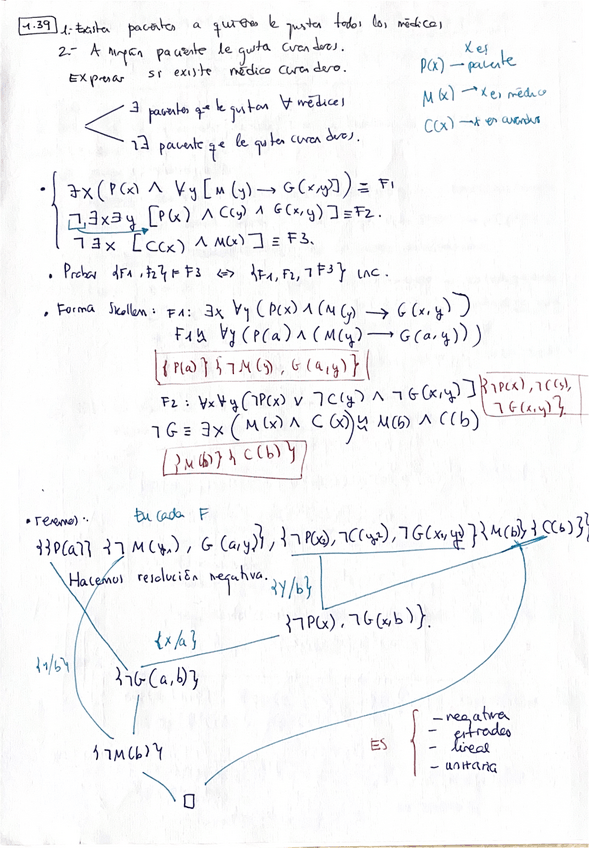 4.39 1.- Exista pacientes a quienes le gusta todos los médicos
2.- A ningún paciente le gusta curanderos.
Expresar si existe médico curandero.
x es
P(x) → paciente
M(x) → x es médico
C(x) → x es curandero
∃ pacientes que le gustan ∀ médicos
¬∃ paciente que le gusten curanderos.
• ∃x(P(x) ∧ ∀y[M(y) → G(x,y)]) ≡ F1
¬∃x∃y [P(x) ∧ C(y) ∧ G(x,y)] ≡ F2.
¬∃x [C(x) ∧ M(x)] ≡ F3.
• Probar {F1, F2} ⊨ F3 ⇔ {F1, F2, ¬F3} inc.
• Forma Skolem: F1: ∃x ∀y (P(x) ∧ (M(y) → G(x,y))
F1 ∀y (P(a) ∧ (M(y) → G(a,y)))
{P(a)} {¬M(y), G(a,y)}
F2: ∀x∀y(¬P(x) ∨ ¬C(y) ∧ ¬G(x,y)]
{¬P(x), ¬C(y),
¬G(x,y)}
¬G ≡ ∃x (M(x) ∧ C(x)) M(b) ∧ C(b)
{M(b)} {C(b)}
• Tenemos: En cada F
{{P(a)} {¬M(y₁), G(a,y)}, {¬P(x₂), ¬C(y₂), ¬G(x₂,y₂)} {M(b)}, {C(b)}}
Hacemos resolución negativa.
{y/b}
{¬P(x), ¬G(x,b)}.
{x/a}
{y/b}
{¬G(a,b)}
{¬M(b)}
□
ES
- negativa
- entrada
- lineal
- unitaria